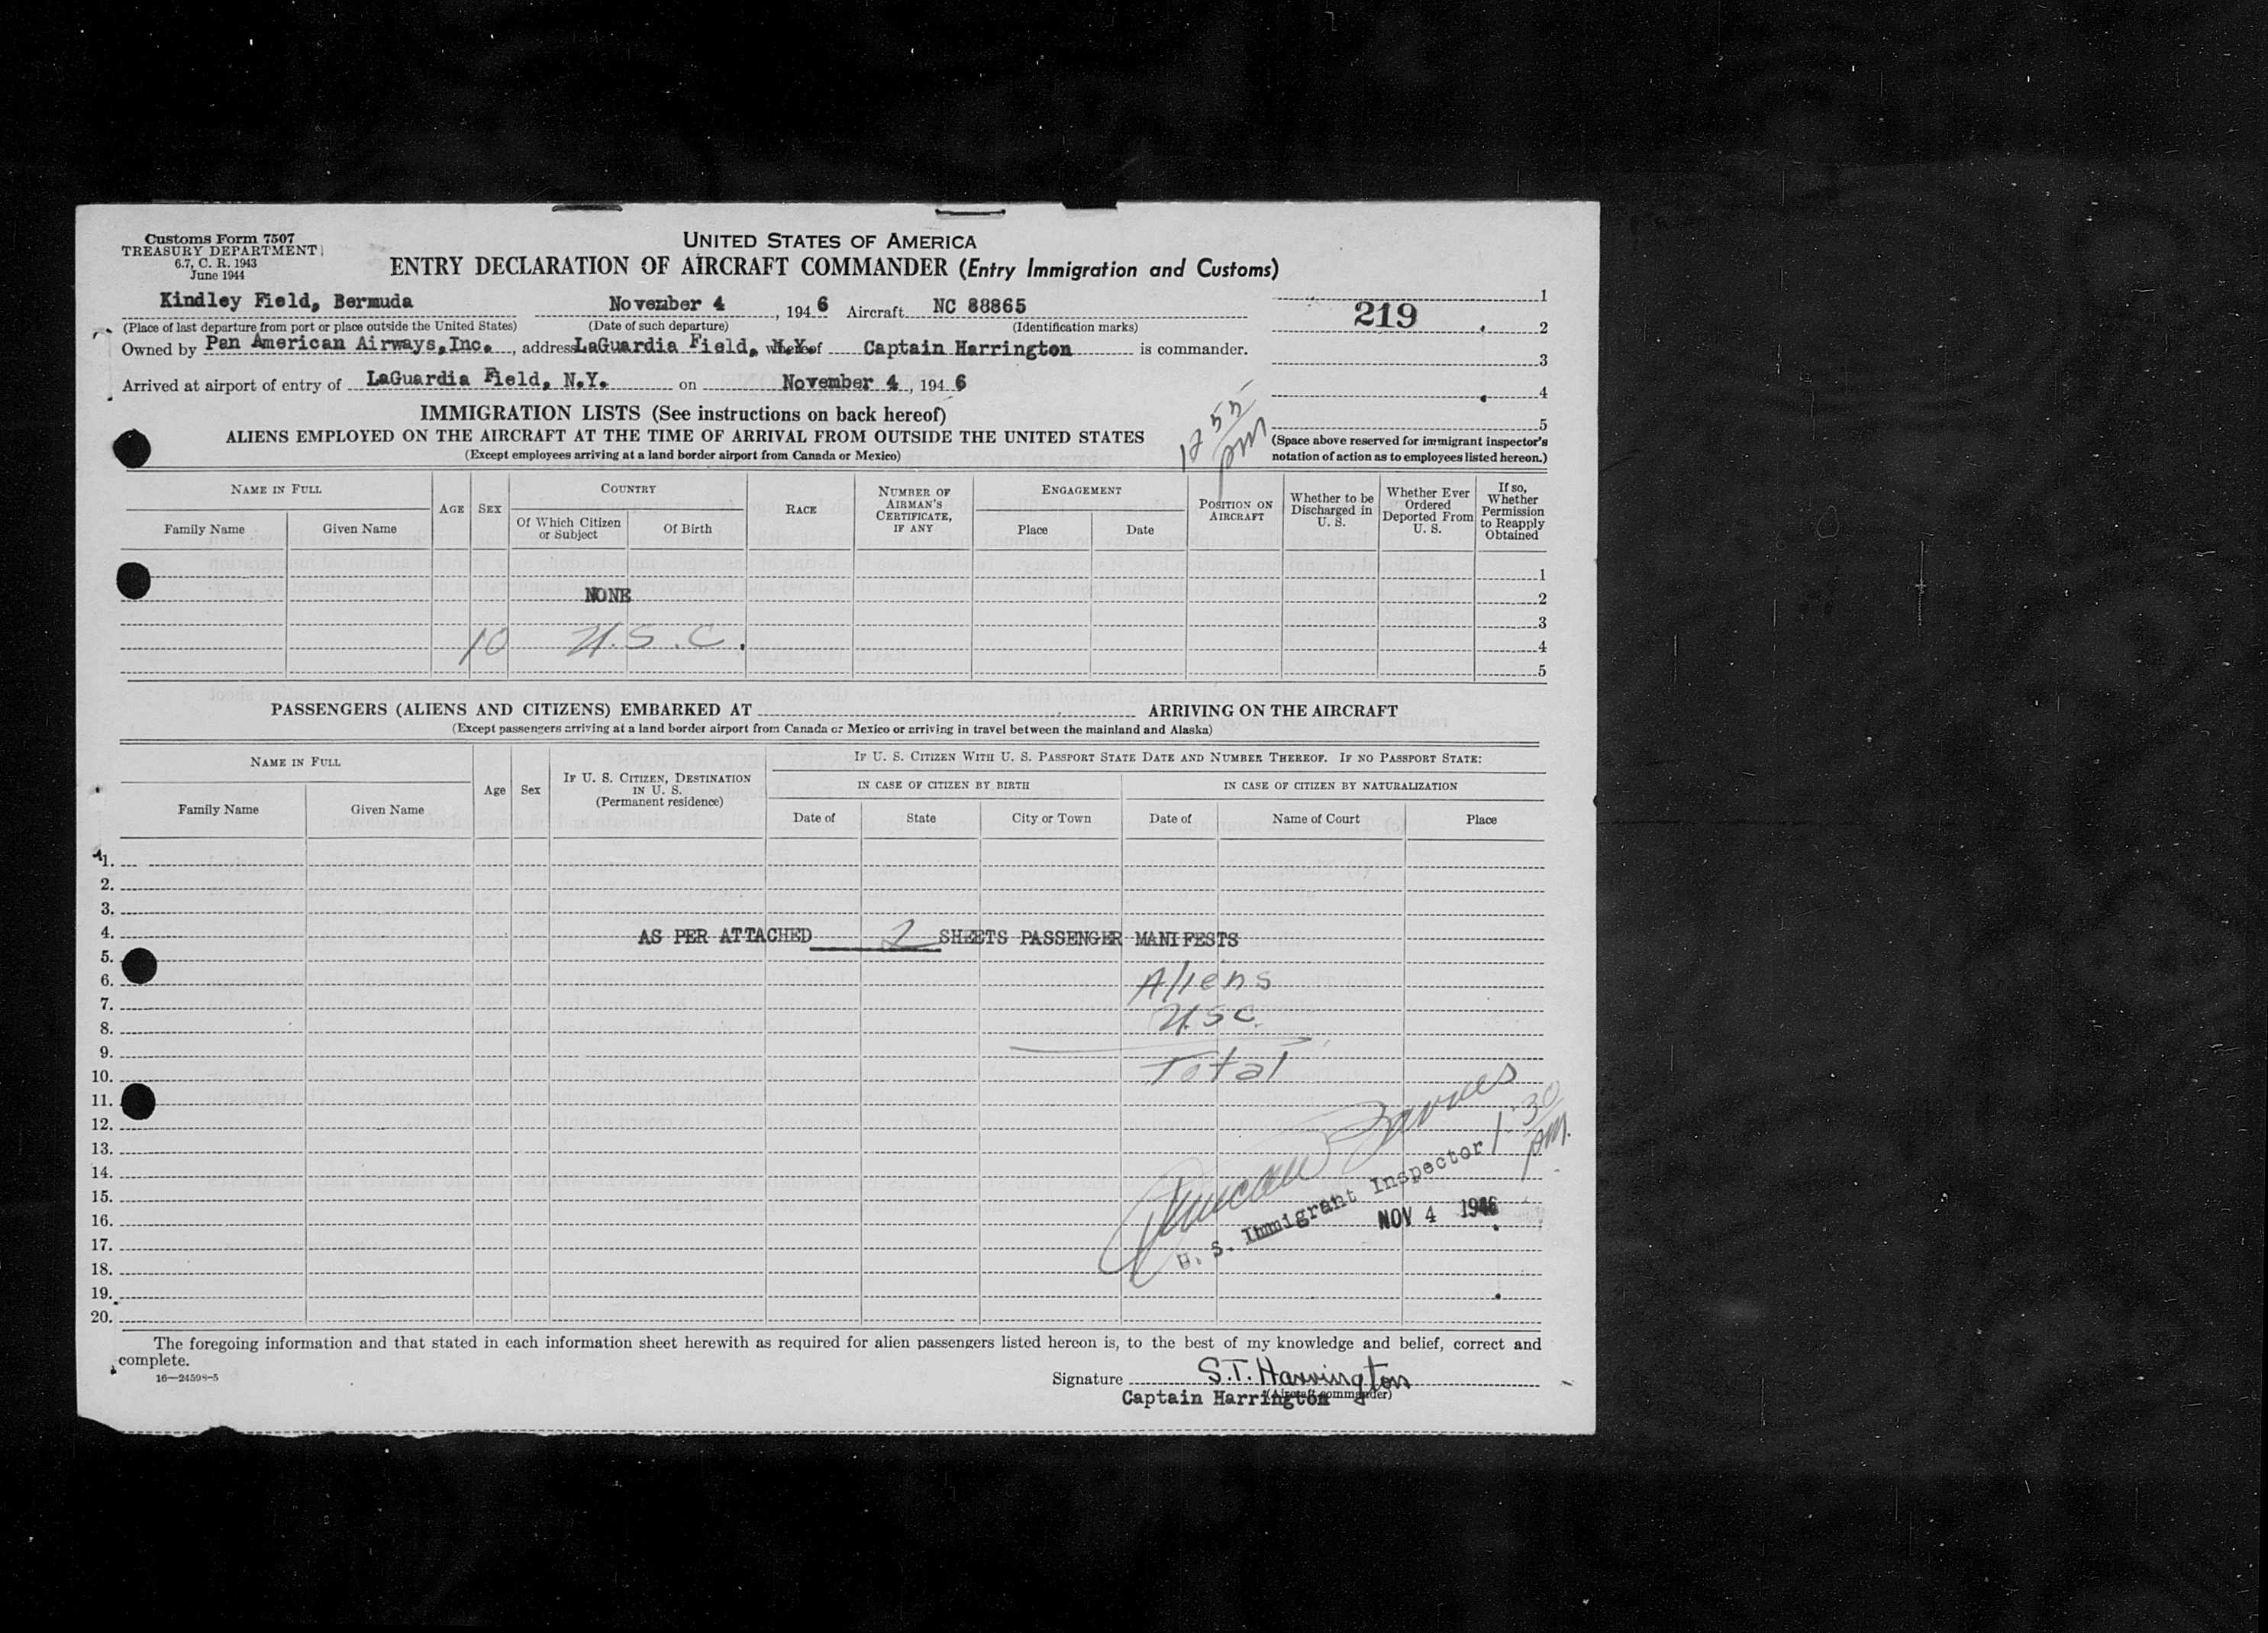 Customs Form 7507
TREASURY DEPARTMENT
6.7, C. R. 1943
June 1944
UNITED STATES OF AMERICA
ENTRY DECLARATION OF AIRCRAFT COMMANDER (Entry Immigration and Customs)
Kindley Field, Bermuda November 4, 1946 Aircraft NC 88865
(Place of last departure from port or place outside the United States) (Date of such departure) (Identification marks)
Owned by Pan American Airways, Inc., address LaGuardia Field, N.Y. whereof Captain Harrington is commander.
Arrived at airport of entry of LaGuardia Field, N.Y. on November 4, 1946
1
219
2
3
4
5
(Space above reserved for immigrant inspector's
notation of action as to employees listed hereon.)
12 55 pm
IMMIGRATION LISTS (See instructions on back hereof)
ALIENS EMPLOYED ON THE AIRCRAFT AT THE TIME OF ARRIVAL FROM OUTSIDE THE UNITED STATES
(Except employees arriving at a land border airport from Canada or Mexico)
NAME IN FULL
Family Name Given Name
AGE SEX
COUNTRY
Of Which Citizen or Subject
Of Birth
RACE
NUMBER OF AIRMAN'S CERTIFICATE, IF ANY
ENGAGEMENT
Place Date
POSITION ON AIRCRAFT
Whether to be Discharged in U. S.
Whether Ever Ordered Deported From U. S.
If so, Whether Permission to Reapply Obtained
1
NONE 2
3
10 U.S.C. 4
5
PASSENGERS (ALIENS AND CITIZENS) EMBARKED AT ARRIVING ON THE AIRCRAFT
(Except passengers arriving at a land border airport from Canada or Mexico or arriving in travel between the mainland and Alaska)
NAME IN FULL
Family Name Given Name
Age Sex
IF U. S. CITIZEN, DESTINATION IN U. S.
(Permanent residence)
IF U. S. CITIZEN WITH U. S. PASSPORT STATE DATE AND NUMBER THEREOF. IF NO PASSPORT STATE:
IN CASE OF CITIZEN BY BIRTH IN CASE OF CITIZEN BY NATURALIZATION
Date of State City or Town Date of Name of Court Place
1.
2.
3.
4. AS PER ATTACHED 2 SHEETS PASSENGER MANIFESTS
5.
6. Aliens
7. U.S.C.
8.
9.
10. Total
11.
12.
13.
14.
15.
16.
17.
18.
19.
20.
Duncan Barnes
U. S. Immigrant Inspector 1:30 pm.
NOV 4 1946
The foregoing information and that stated in each information sheet herewith as required for alien passengers listed hereon is, to the best of my knowledge and belief, correct and
complete.
16—24598-5
Signature S.T. Harrington
(Aircraft commander)
Captain Harrington